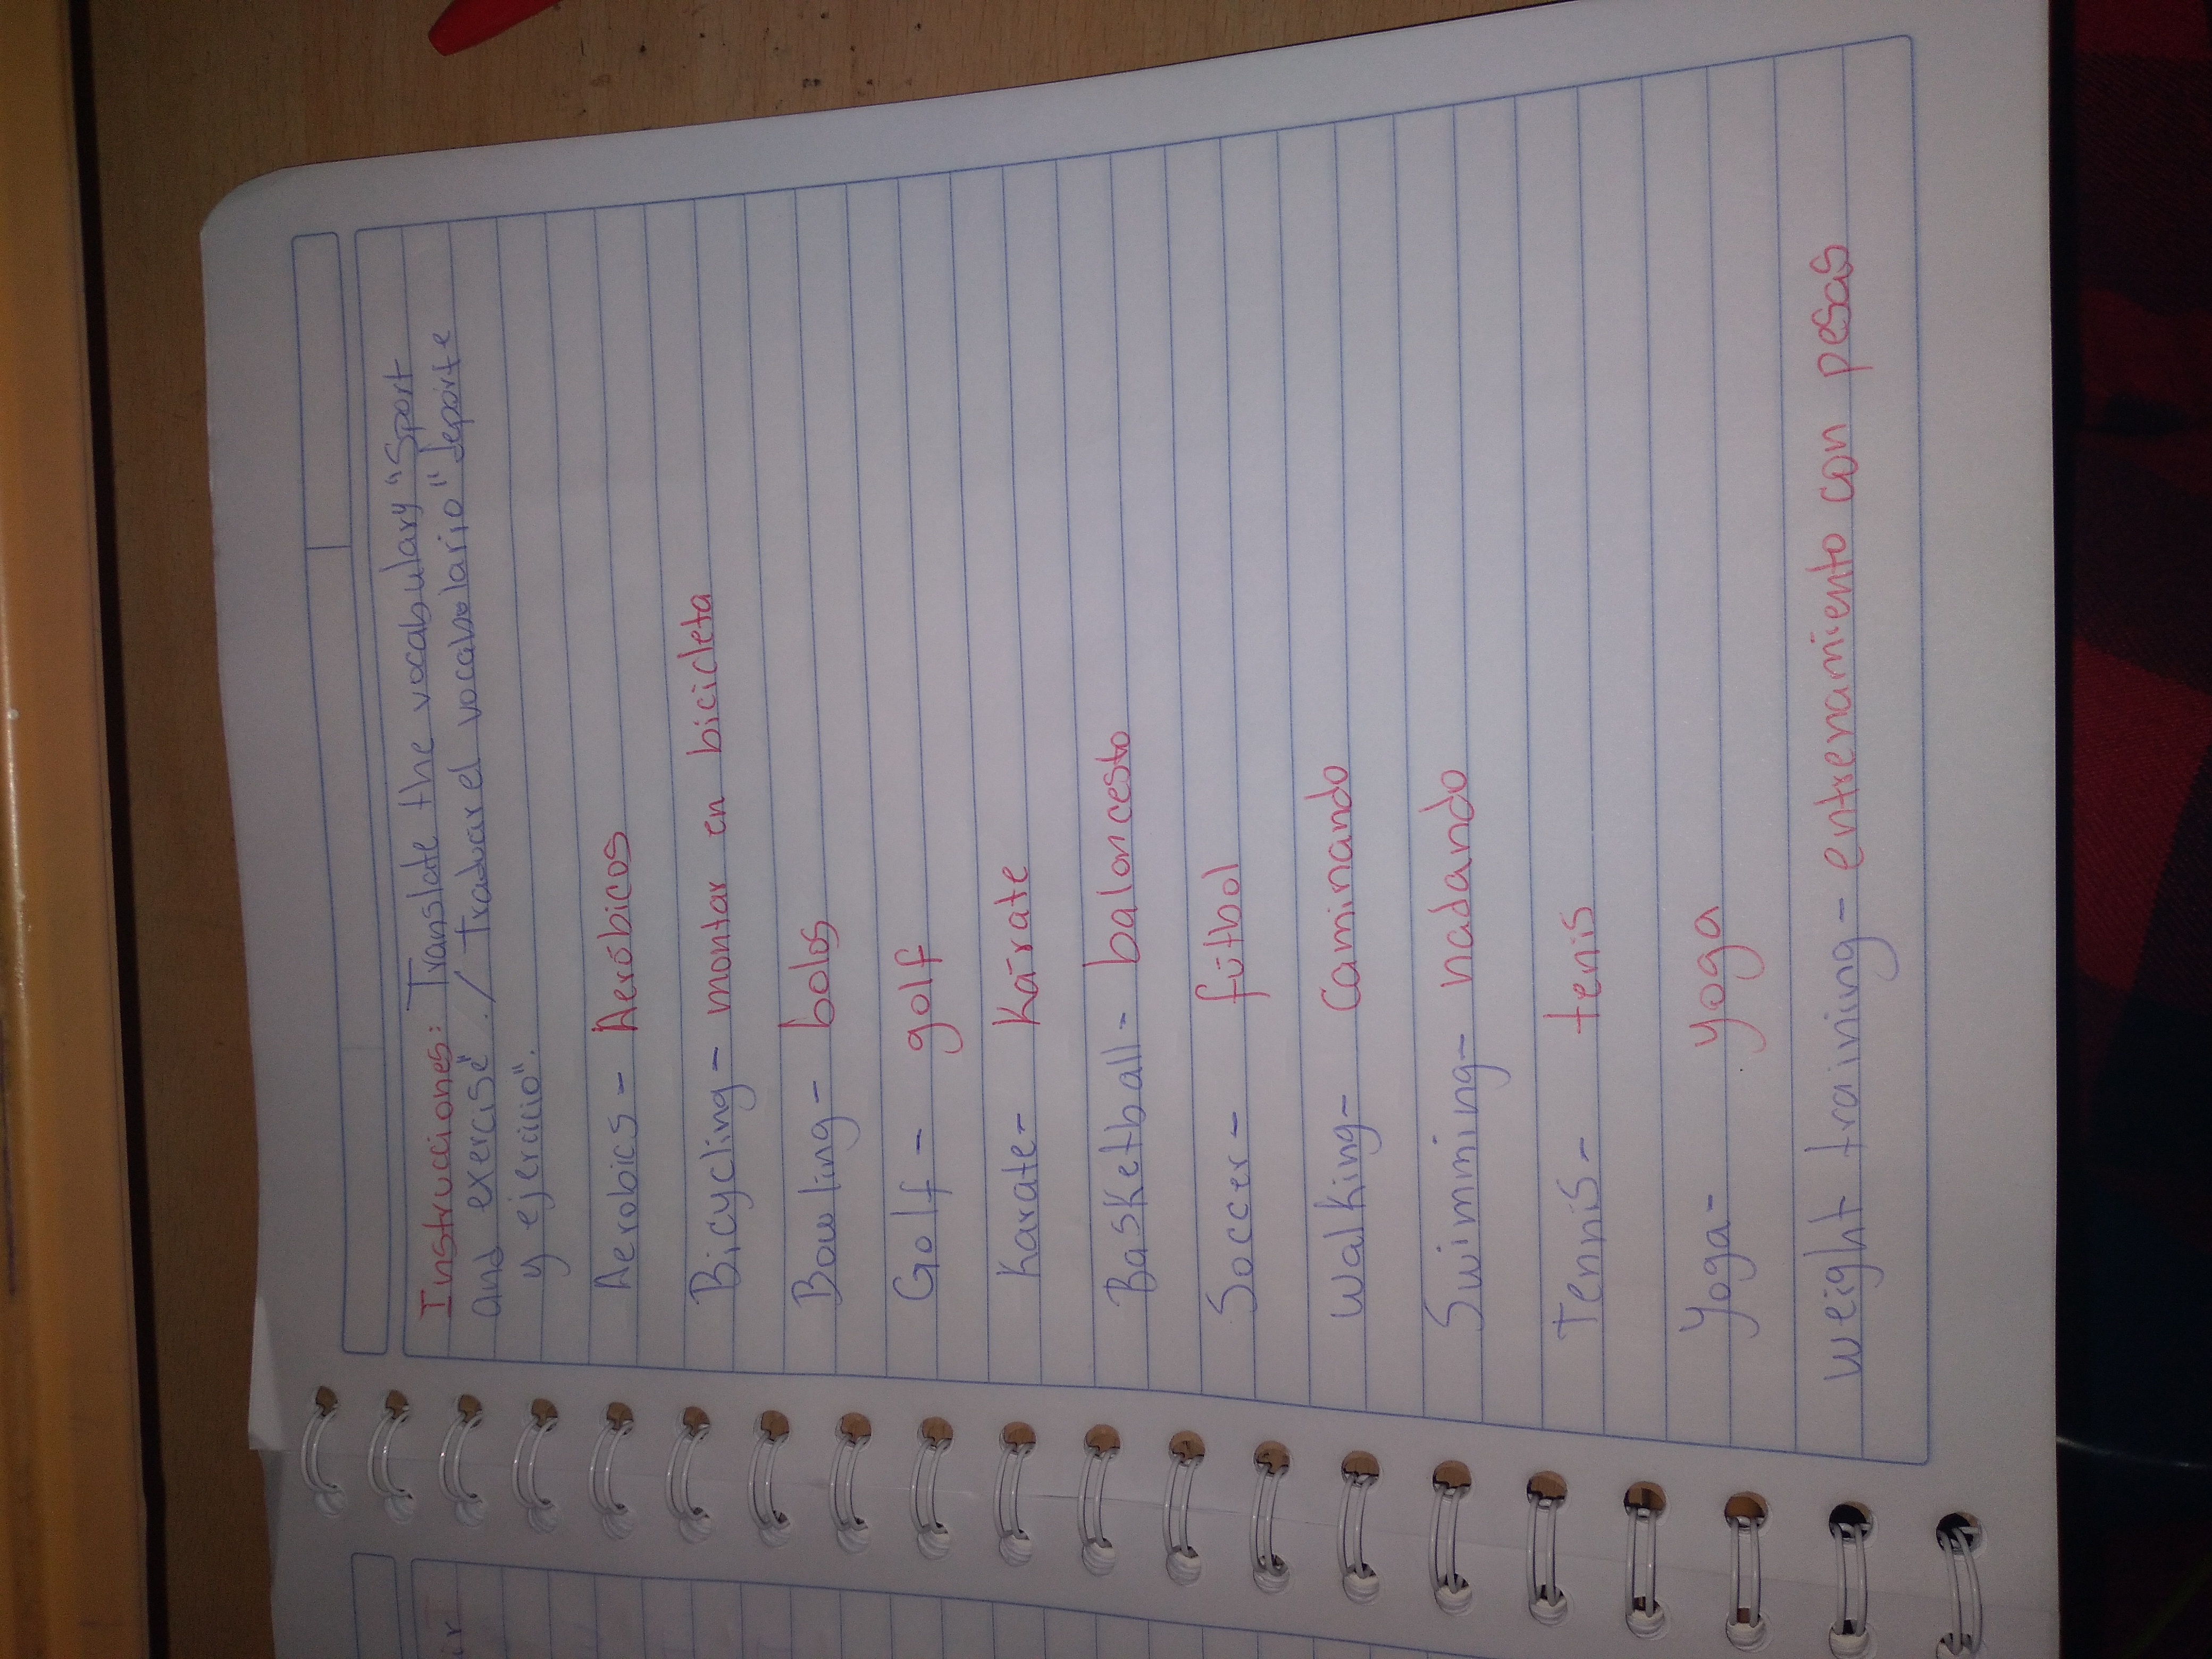 Instrucciones: Translate the vocabulary "Sport
and exercise". / Traducar el vocabulario "deporte
y ejercicio".
Aerobics - Aeróbicos
Bicycling - montar en bicicleta
Bowling - bolos
Golf - golf
Karate - Kárate
Basketball - baloncesto
Soccer - fútbol
Walking - Caminando
Swimming - nadando
Tennis - tenis
Yoga - Yoga
Weight training - entrenamiento con pesas